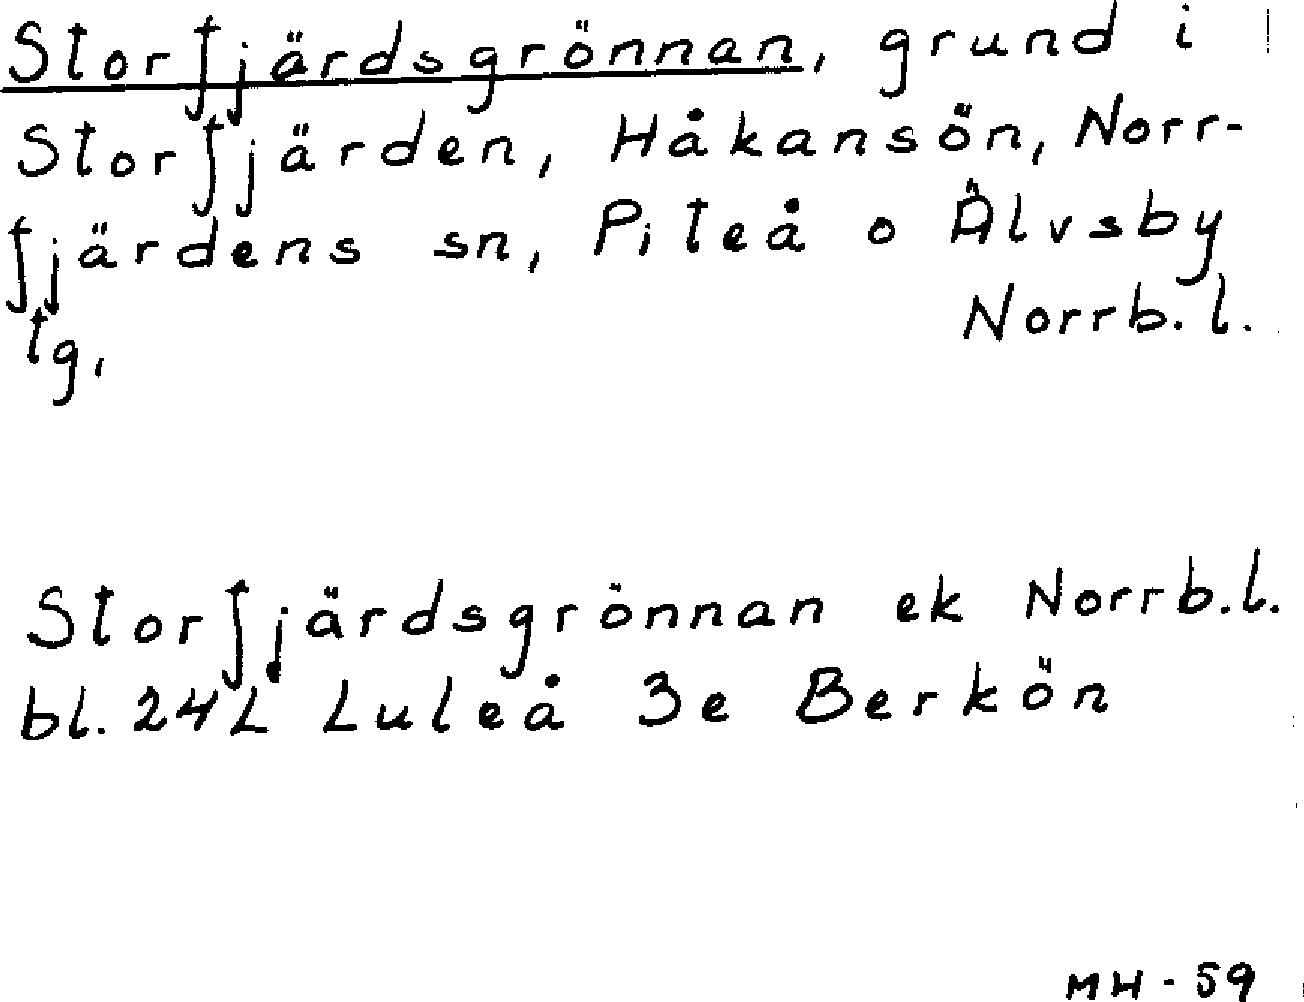 Storfjärdsgrönnan, grund i
Storfjärden, Håkansön, Norr-
fjärdens sn, Piteå o Älvsby
tg, Norrb. l.
Storfjärdsgrönnan ek Norrb.l.
bl. 24L Luleå 3e Berkön
MH-59